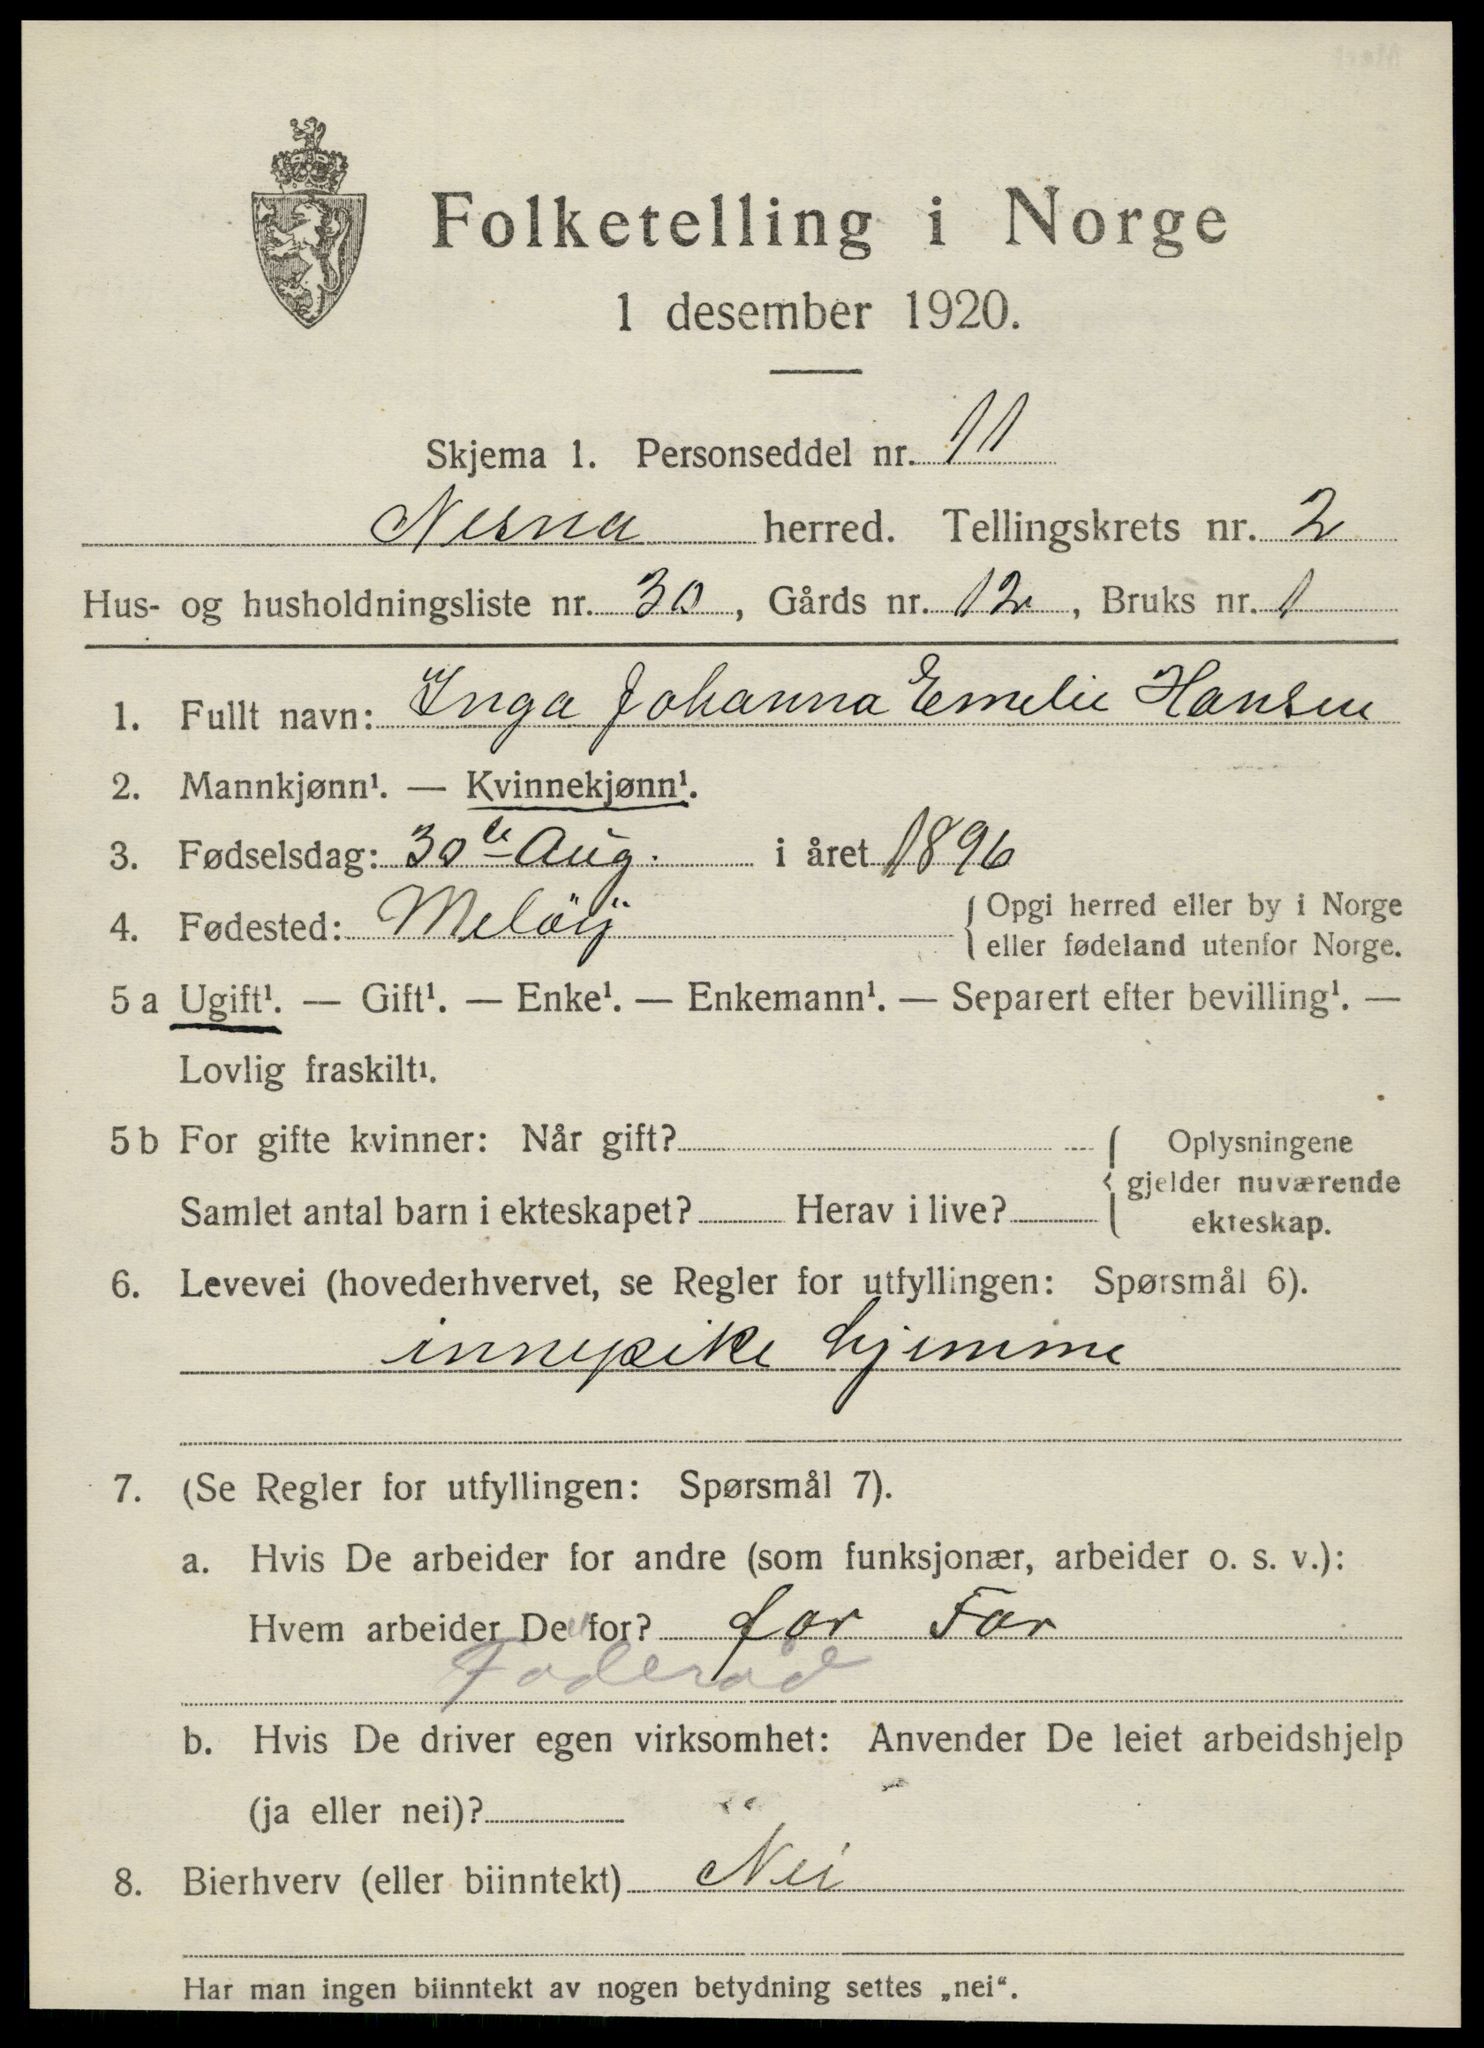 Folketelling i Norge
1 desember 1920.
Skjema 1. Personseddel nr. 11
Nesna herred. Tellingskrets nr. 2
Hus- og husholdningsliste nr. 30, Gårds nr. 12, Bruks nr. 1
1. Fullt navn: Inga Johanna Emelie Hansen
2. Mannkjønn¹. — Kvinnekjønn¹.
3. Fødselsdag: 30te Aug. i året 1896
4. Fødested: Meløy { Opgi herred eller by i Norge
eller fødeland utenfor Norge.
5 a Ugift¹. — Gift¹. — Enke¹. — Enkemann¹. — Separert efter bevilling¹. —
Lovlig fraskilt¹.
5 b For gifte kvinner: Når gift? { Oplysningene
gjelder nuværende
Samlet antal barn i ekteskapet? Herav i live?
ekteskap.
6. Levevei (hovederhvervet, se Regler for utfyllingen: Spørsmål 6).
innepike hjemme
7. (Se Regler for utfyllingen: Spørsmål 7).
a. Hvis De arbeider for andre (som funksjonær, arbeider o. s. v.):
Hvem arbeider De for? for Far
Foderåd
b. Hvis De driver egen virksomhet: Anvender De leiet arbeidshjelp
(ja eller nei)?
8. Bierhverv (eller biinntekt) Nei
Har man ingen biinntekt av nogen betydning settes „nei“.